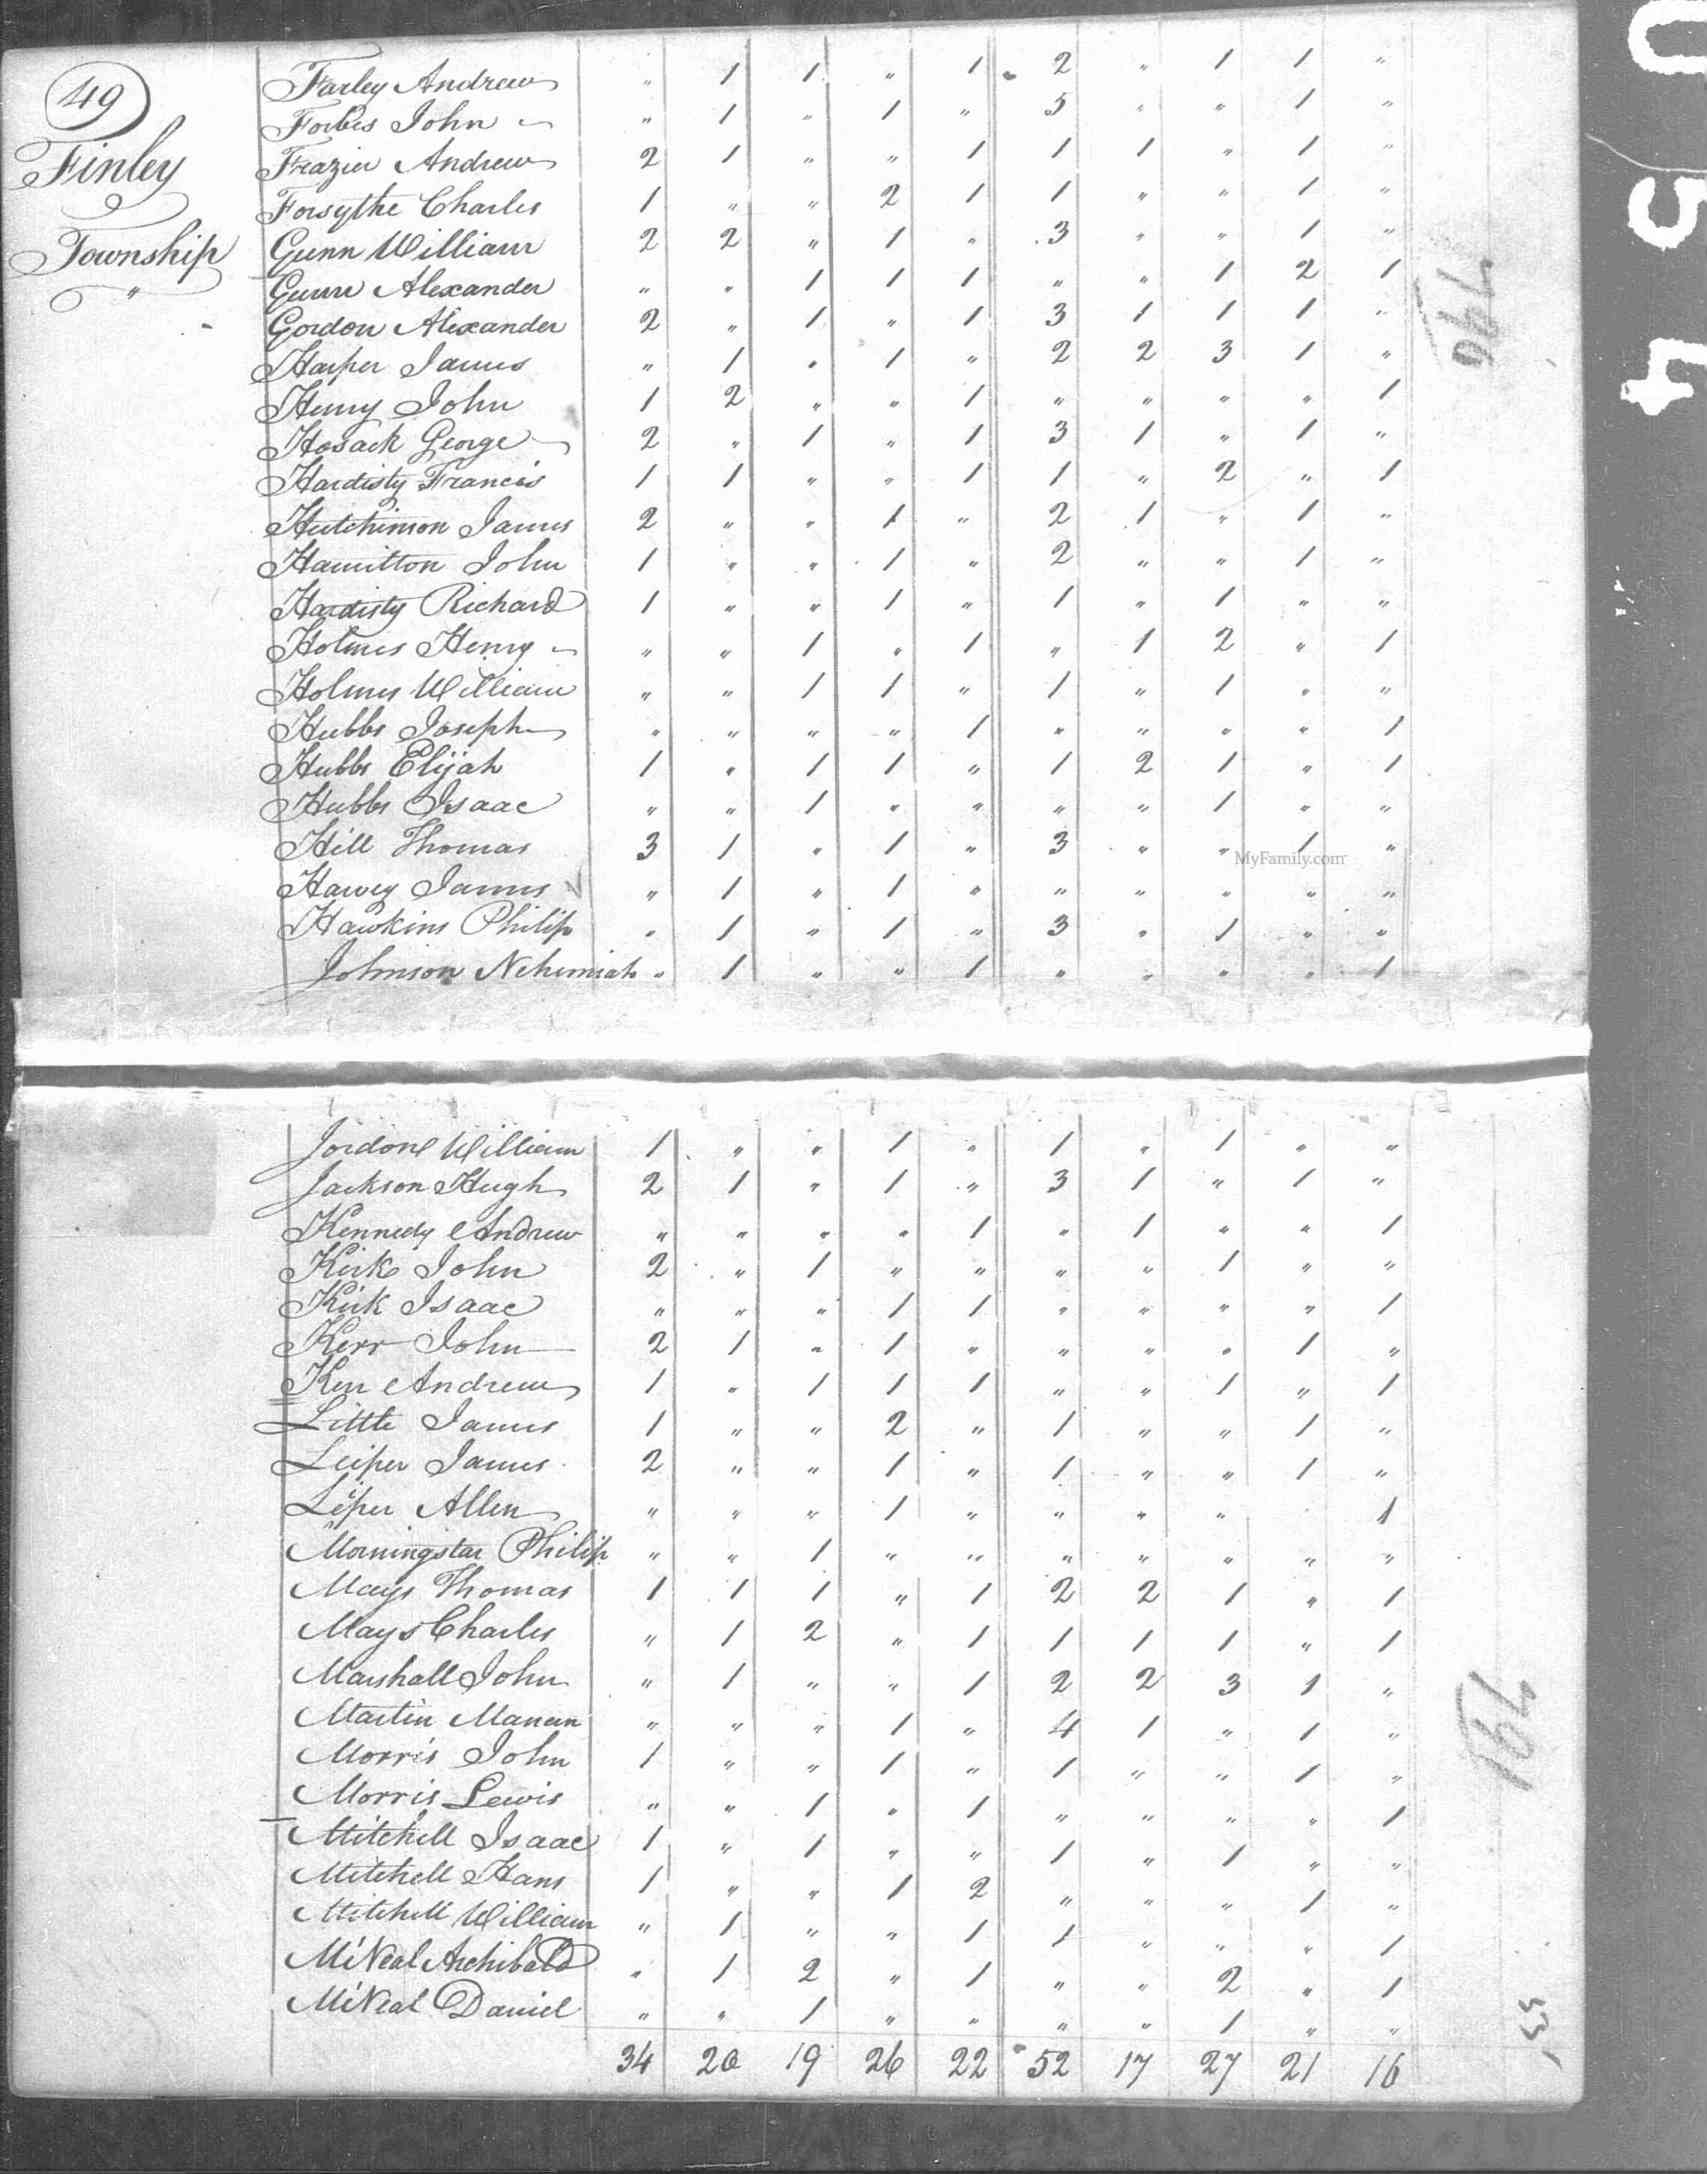 49
Finley
Township
"
Farley Andrew " 1 1 " 1 2 " 1 1 "
Forbis John " 1 " 1 " 5 " " 1 "
Frazier Andrew 2 1 " " 1 1 1 " 1 "
Forsythe Charles 1 " " 2 1 1 " " 1 "
Gunn William 2 2 " 1 " 3 " " 1 "
Gunn Alexander " " 1 1 1 " " 1 2 1
Gordon Alexander 2 " 1 " 1 3 1 1 1 "
Harper James " 1 " 1 " 2 2 3 1 "
Henry John 1 2 " " 1 " " " " 1
Hosack George 2 " 1 " 1 3 1 " 1 "
Hardisty Francis 1 1 " " 1 1 " 2 " 1
Hutchinson James 2 " " 1 " 2 1 " 1 "
Hamilton John 1 " " 1 " 2 " " 1 "
Hardisty Richard 1 " " 1 " 1 " 1 " "
Holmes Henry " " 1 " 1 " 1 2 " 1
Holmes William " " 1 1 " 1 " 1 " "
Hubbs Joseph " " " " 1 " " " " 1
Hubbs Elijah 1 " 1 1 " 1 2 1 " 1
Hubbs Isaac " " 1 " " " " 1 " "
Hill Thomas 3 1 " 1 " 3 " " 1 "
MyFamily.com
Harvey James " 1 " 1 " " " " " "
Hawkins Philip " 1 " 1 " 3 " 1 " "
Johnson Nehemiah " 1 " " 1 " " " " 1
Jordon William 1 " " 1 " 1 " 1 " "
Jackson Hugh 2 1 " 1 " 3 1 " 1 "
Kennedy Andrew " " " " 1 " 1 " " 1
Kirk John 2 " 1 " " " " 1 " "
Kirk Isaac " " " 1 1 " " " " 1
Kerr John 2 1 " 1 " " " " 1 "
Kerr Andrew 1 " 1 1 1 " " 1 " 1
Little James 1 " " 2 " 1 " " 1 "
Leiper James 2 " " 1 " 1 " " 1 "
Leper Allen " " " 1 " " " " 1
Morningstar Philip " " 1 " " " " " " "
Mays Thomas 1 1 1 " 1 2 2 1 " 1
Mays Charles " 1 2 " 1 1 1 1 " 1
Marshall John " 1 " " 1 2 2 3 1 "
Martin " " " 1 " 4 1 " 1 "
Morris John 1 " " 1 " 1 " " 1 "
Morris Lewis " " 1 " 1 " " " " 1
Mitchell Isaac 1 " 1 " " 1 " 1 " "
Mitchell Hans 1 " " 1 2 " " " 1 "
Mitchell William " 1 " " 1 1 " " " 1
McNeal Archibald " 1 2 " 1 " " 2 " 1
McNeal Daniel " " 1 " " " " 1 " "
34 20 19 26 22 52 17 27 21 16
796
791